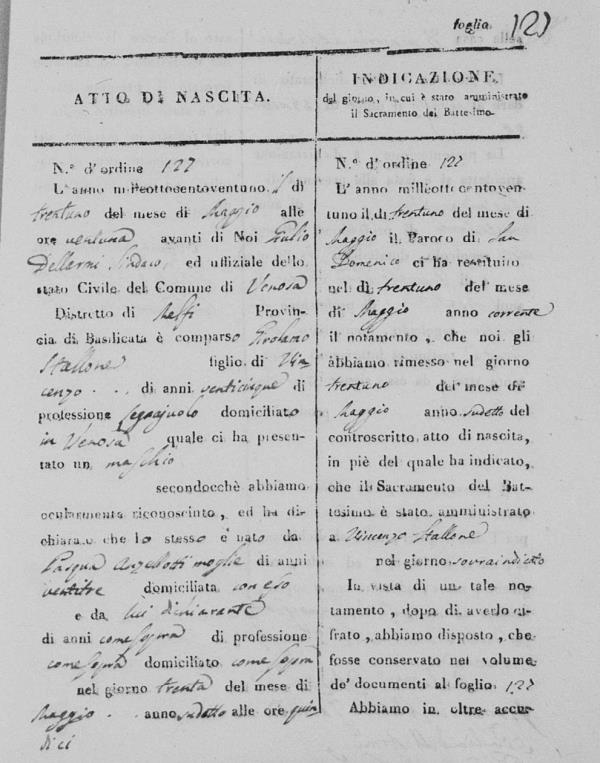 foglio 121
ATTO DI NASCITA.
N.° d'ordine 127
L'anno milleottocentoventuno il di
trentuno del mese di Maggio alle
ore ventuna avanti di Noi Giulio
Dellarmi Sindaco, ed uffiziale dello
stato Civile del Comune di Venosa
Distretto di Melfi Provin-
cia di Basilicata è comparso Girolamo
Stallone figlio di Vin
cenzo di anni venticinque di
professione Segajuolo domiciliato
in Venosa quale ci ha presen-
tato un maschio
secondocchè abbiamo
ocularmente riconosciuto, ed ha di-
chiarato che lo stesso è nato da
Pasqua Anzellotti moglie di anni
ventitre domiciliata con eso
e da lui dichiarante
di anni come sopra di professione
come sopra domiciliato come sopra
nel giorno trenta del mese di
Maggio anno sudetto alle ore quin
dici
INDICAZIONE
del giorno, in cui è stato amministrato
il Sacramento del Battesimo.
N.° d'ordine 127
L'anno milleottocentoven-
tuno il di trentuno del mese di
Maggio il Paroco di San
Domenico ci ha restituito
nel di trentuno del mese
di Maggio anno corrente
il notamento, che noi gli
abbiamo rimesso nel giorno
trentuno del mese di
Maggio anno sudetto del
controscritto atto di nascita,
in piè del quale ha indicato,
che il Sacramento del Bat-
tesimo è stato amministrato
a Vincenzo Stallone
nel giorno sovraindicato
In vista di un tale no-
tamento, dopo di averlo ci-
frato, abbiamo disposto, che
fosse conservato nel volume
de' documenti al foglio 127
Abbiamo in oltre accu-